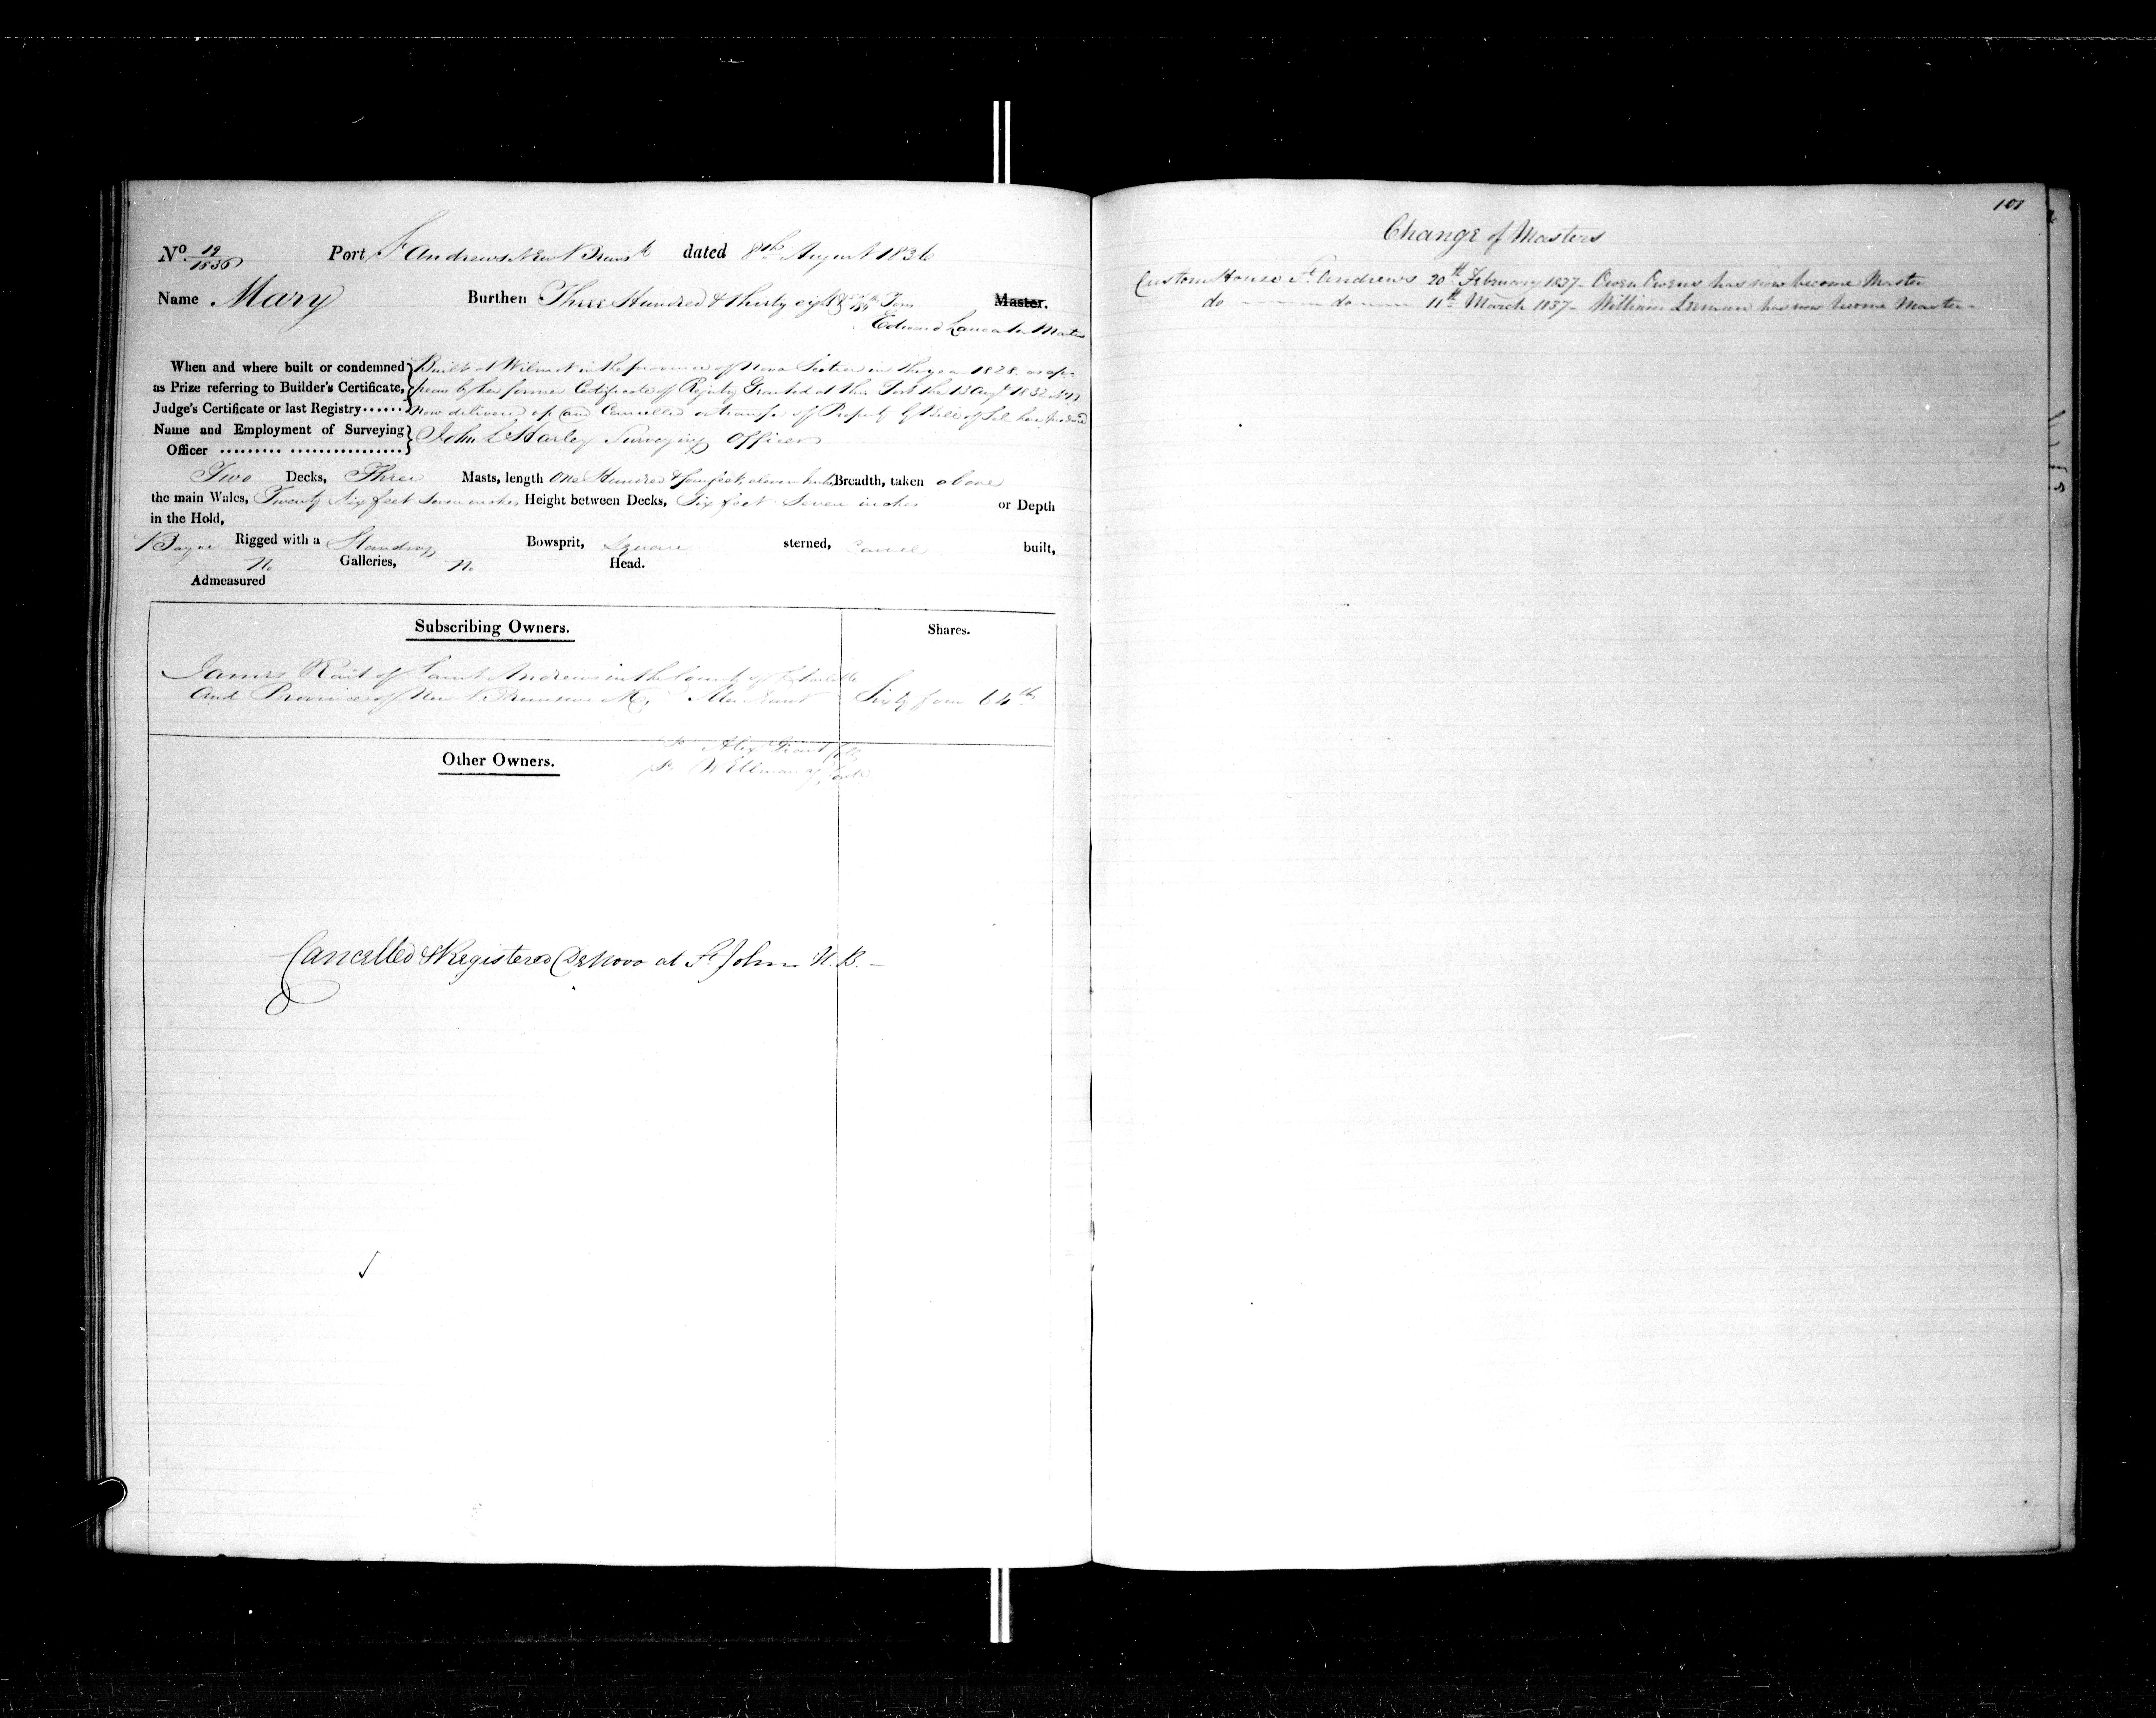 No. 19/1836 Port St Andrews New Brunsk dated 8th August 1836
Name Mary Burthen Three Hundred & thirty eight Tons Master.
Edward Lancaster Master
When and where built or condemned as Prize referring to Builder's Certificate, Judge's Certificate or last Registry......
Built at Wilmot in the province of Nova Scotia in the year 1828. as ap-
pears by her former Certificate of Registry Granted at this Port the 13 Augt 1832 No 17
now delivered up and Cancelled on transfer of Property by Bill of Sale
Name and Employment of Surveying Officer
John L Harley Surveying Officer
Two Decks, Three Masts, length One Hundred & four feet, eleven inches Breadth, taken above
the main Wales, Twenty six feet seven inches Height between Decks, Six feet Seven inches or Depth
in the Hold,
Barque Rigged with a Standing Bowsprit, Square sterned, Carvel built,
No Galleries, No Head.
Admeasured
Subscribing Owners. Shares.
James Rait of Saint Andrews in the County of Charlotte
And Province of New Brunswick, Merchant Sixty four 64ths
Other Owners.
Alex Grant
Cancelled & Registered De Novo at St John N.B. -
101
Change of Masters
Custom House St. Andrews 20th February 1837- Owen Owens has now become Master
do do 11th March 1837- William Leeman has now become Master-